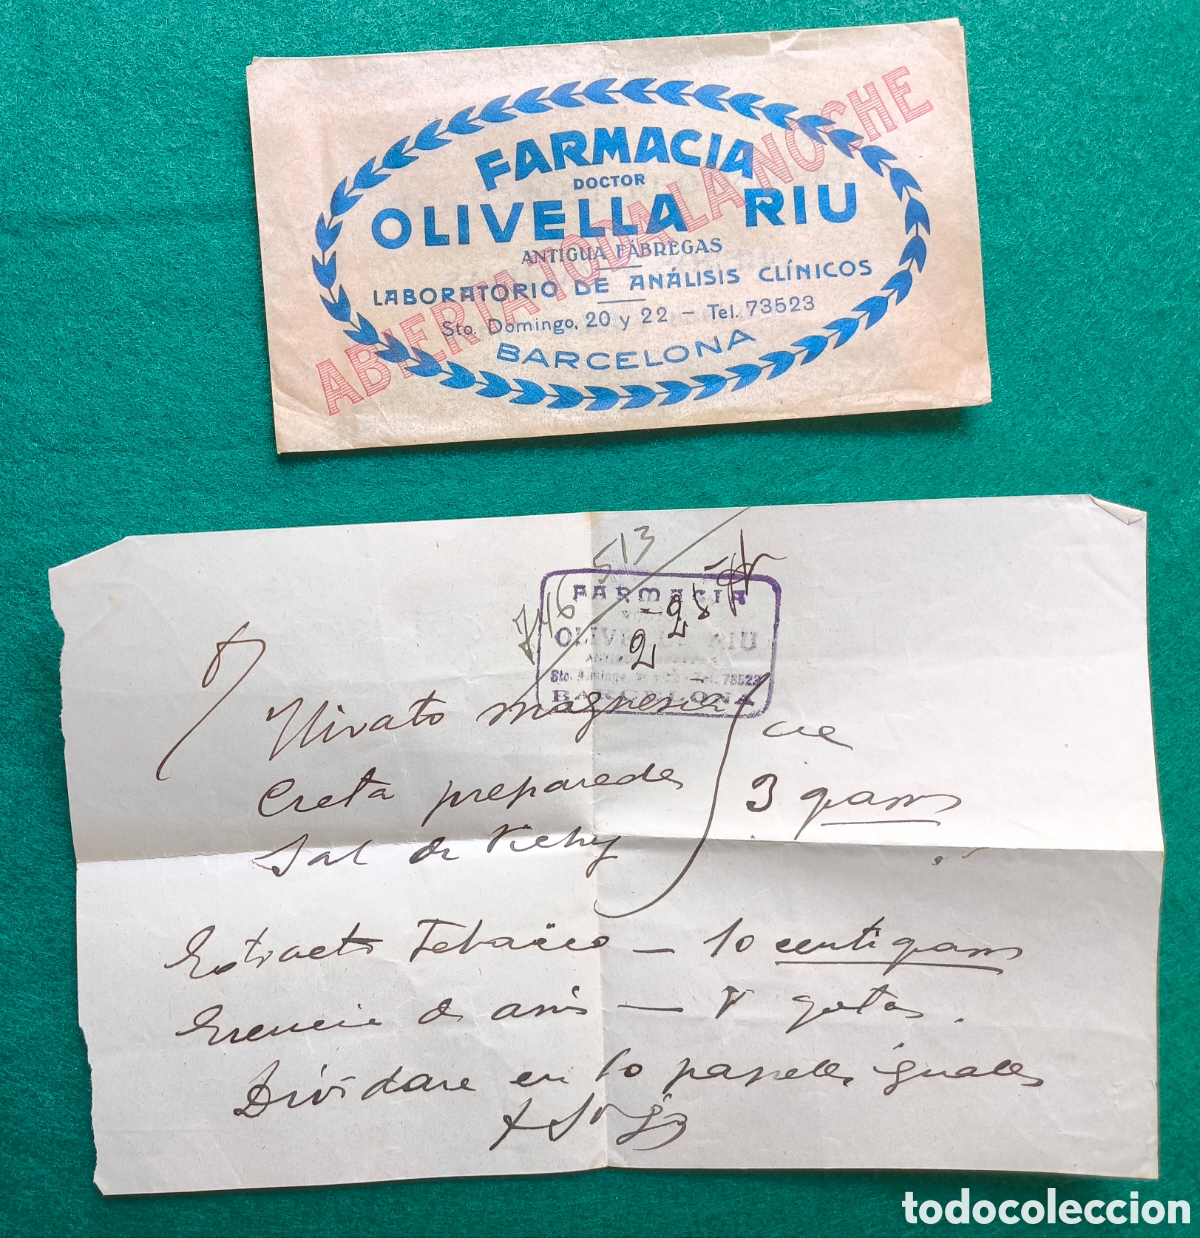 FARMACIA
DOCTOR
OLIVELLA RIU
ANTIGUA FÁBREGAS
LABORATORIO DE ANÁLISIS CLÍNICOS
Sto. Domingo, 20 y 22 - Tel. 73523
BARCELONA
ABIERTA TODA LA NOCHE
513
716
FARMACIA
OLIVELLA RIU
Sto. Domingo, 20 y 22 - Tel. 73523
BARCELONA
magnesia
Creta preparada
3 gramos
Sal de Vichy
Extracto Tebaico — 10 centigramos
Esencia de anis — V gotas.
Dividase en 10 papeles iguales
todocoleccion